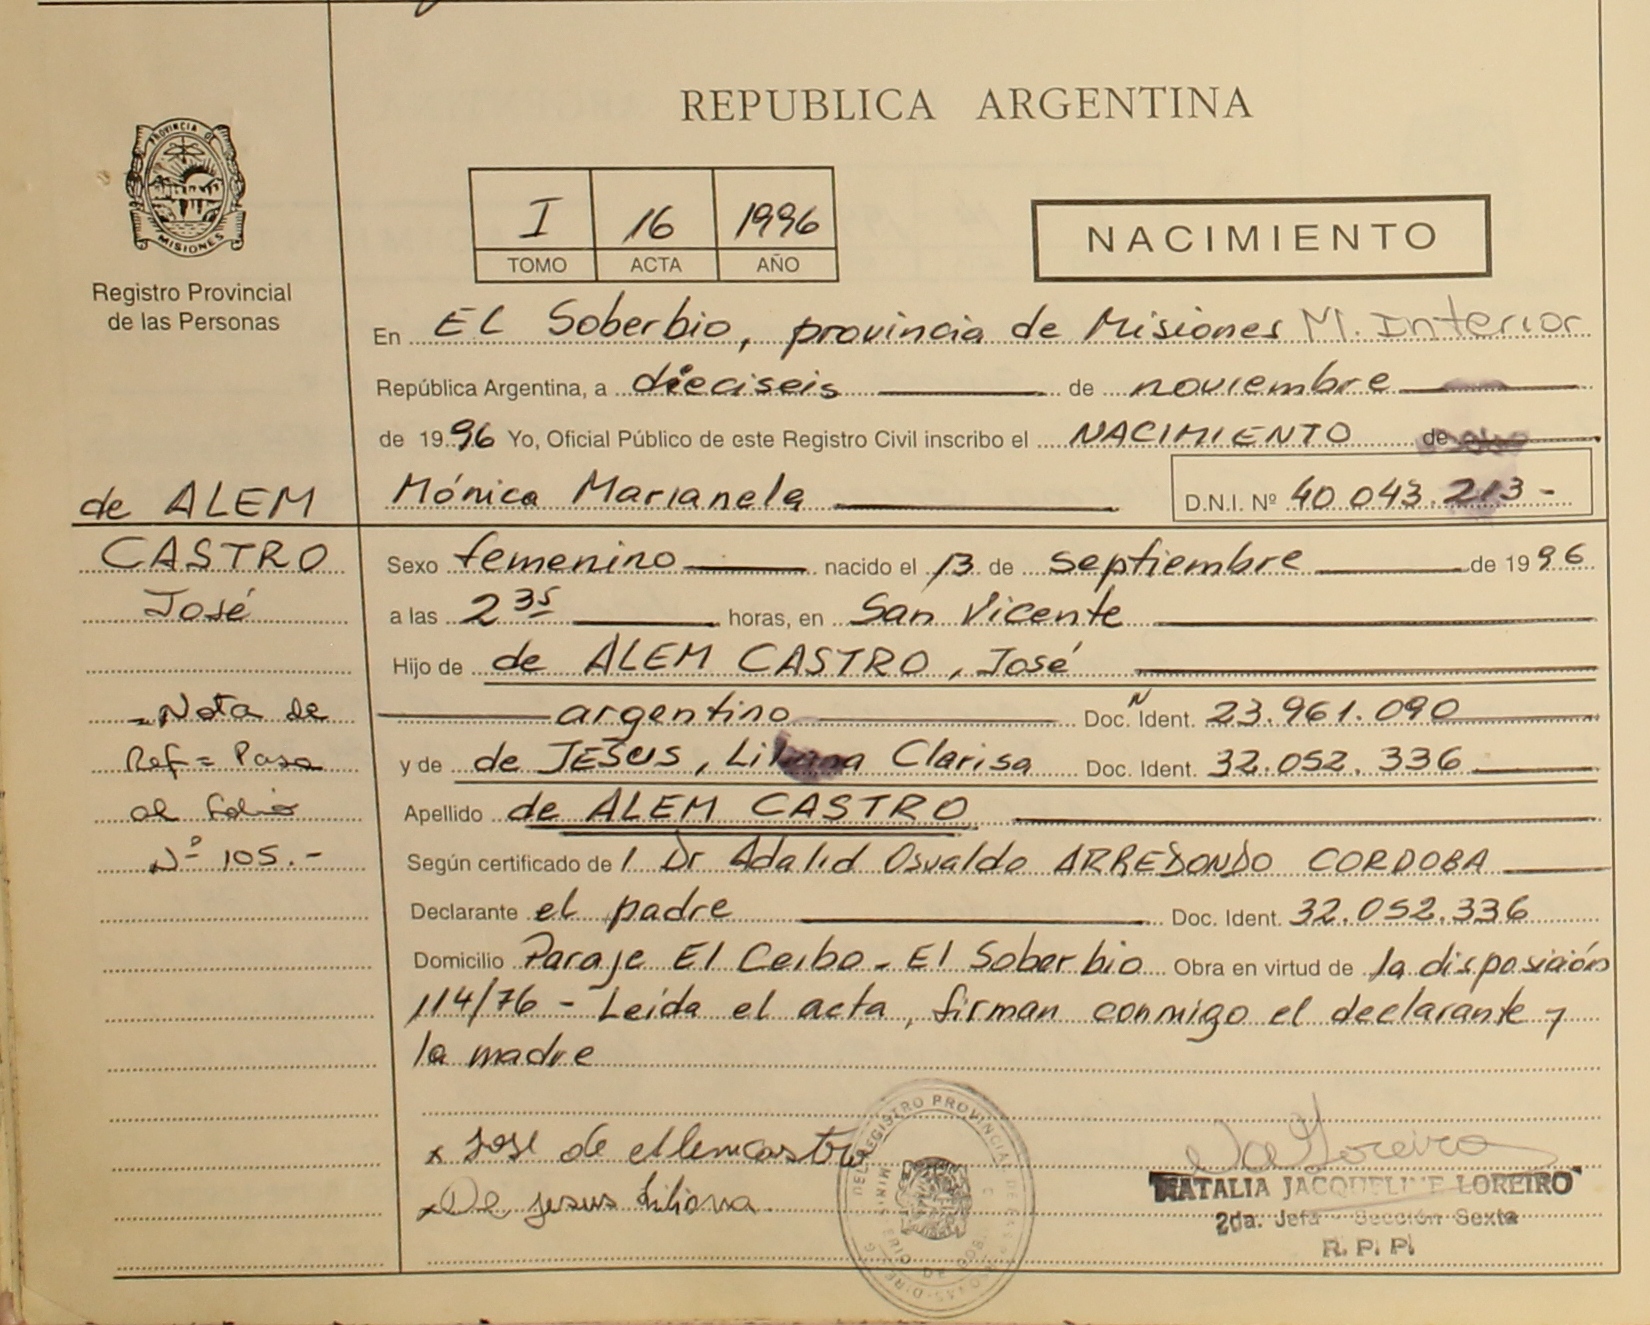 REPUBLICA ARGENTINA
PROVINCIA DE
MISIONES
Registro Provincial
de las Personas
I 16 1996
TOMO ACTA AÑO
NACIMIENTO
En EL Soberbio, provincia de Misiones M. Interior
República Argentina, a dieciseis de noviembre
de 1996 Yo, Oficial Público de este Registro Civil inscribo el NACIMIENTO de
Mónica Marianela D.N.I. Nº 40 043.213-
de ALEM
CASTRO
José
Nota de
Ref = Pasa
al folio
Nº 105.-
Sexo femenino nacido el 13 de septiembre de 1996
a las 2 35 horas, en San Vicente
Hijo de de ALEM CASTRO, José
argentino Doc. Ident. 23.961.090
y de de JESUS, Liliana Clarisa Doc. Ident. 32.052.336
Apellido de ALEM CASTRO
Según certificado de l Dr Adalid Osvaldo ARREDONDO CORDOBA
Declarante el padre Doc. Ident. 32.052.336
Domicilio Paraje El Ceibo - El Soberbio Obra en virtud de la disposición
114/76 - Leída el acta, firman conmigo el declarante y
la madre
x José de Alemcastro
x De jesus Liliana
NATALIA JACQUELINE LOREIRO
2da. Jefa - Sección Sexta
R. P. P.